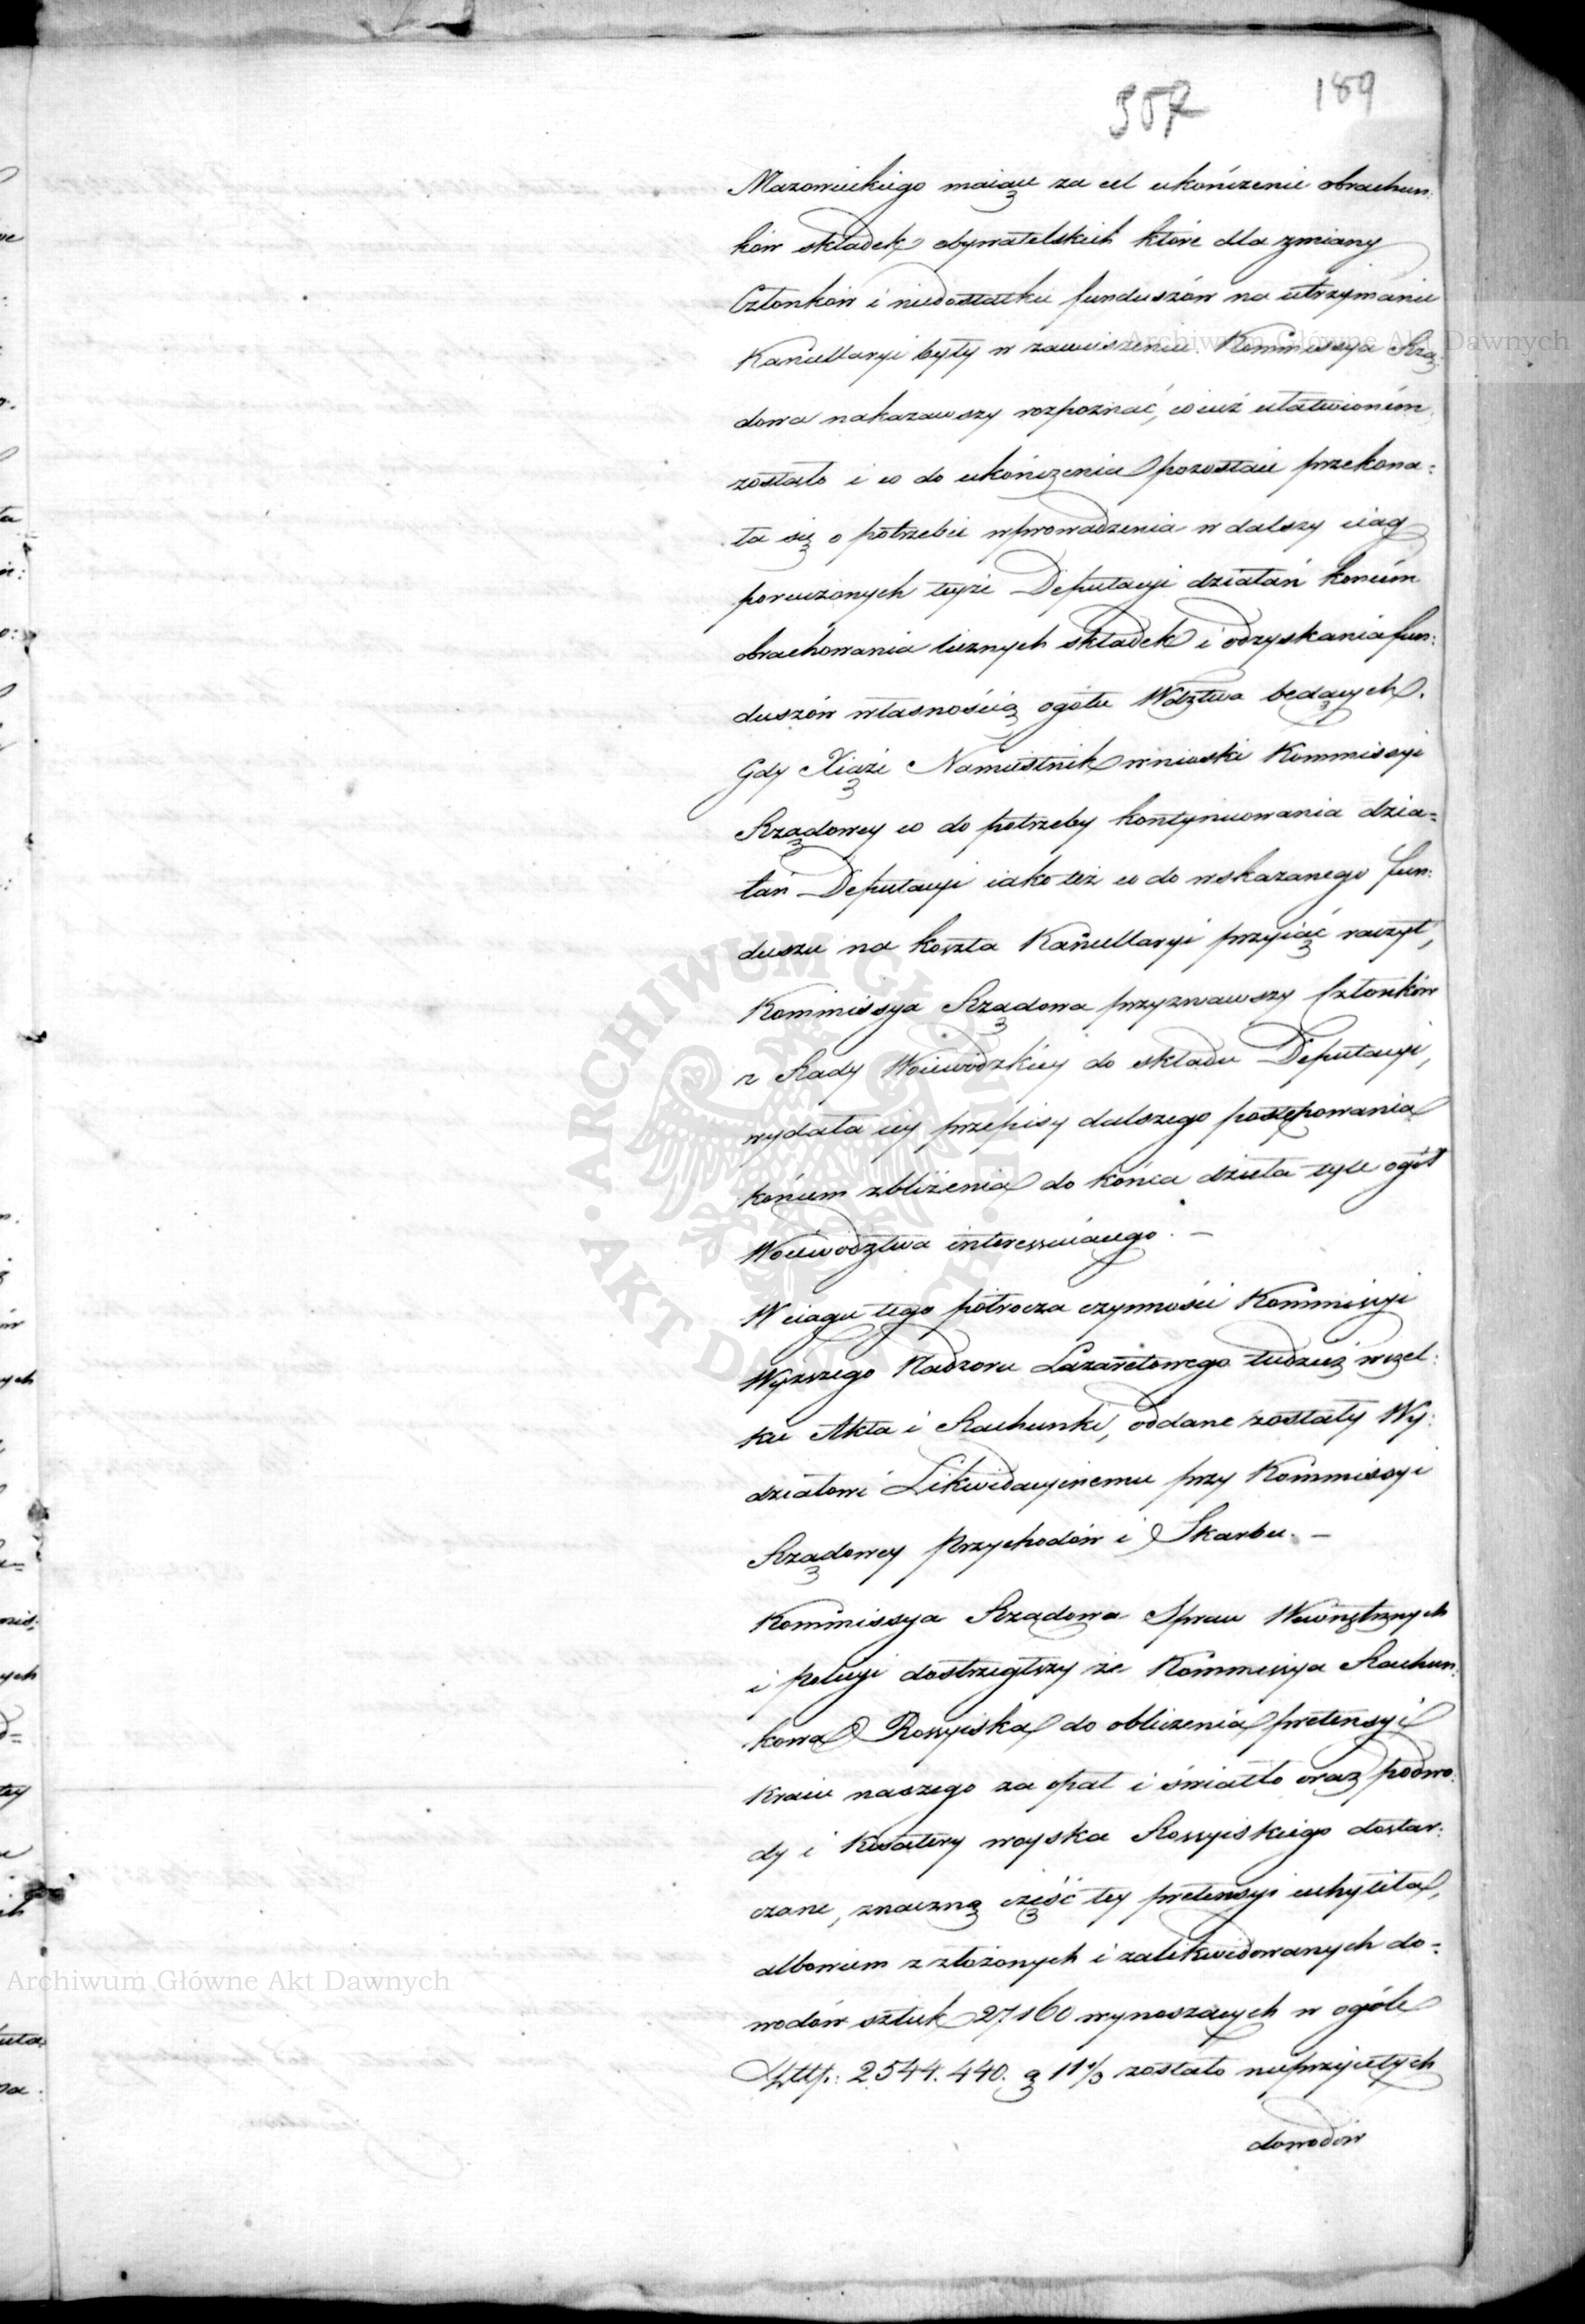 357 189
Mazowieckiego maiące za cel ukończenie obrachun:
ków składek obywatelskich które dla zmiany
Członków i niedostatku funduszów na utrzymanie
Kancellaryi były w zawieszeniu. Kommissya Rzą:
dowa nakazawszy rozpoznać, co iuż ułatwioném
zostało i co do ukończenia pozostaie przekona:
ła się o potrzebie wprowadzenia w dalszy ciąg
poruczonych teyże Deputacyi działań końcem
obrachowania licznych składek i odzyskania fun:
duszów własnością ogółu Wdztwa będących.
Gdy Xiąże Namiestnik wnioski Kommissyi
Rządowey co do potrzeby kontynuowania dzia=
łań Deputacyi iako też co do wskazanego fun:
duszu na koszta Kancellaryi przyiąć raczył,
Kommissya Rządowa przyzwawszy Członków
z Rady Woiewódzkiey do składu Deputacyi,
wydała iey przepisy dalszego postępowania
końcem zbliżenia do końca dzieła tyle ogół
Woiewództwa interessuiącego. —
W ciągu tego półrocza czynności Kommissyi
Wyższego Nadzoru Lazaretowego tudzież wszel:
kie Akta i Rachunki, oddane zostały Wy:
działowi Likwidacyinemu przy Kommissyi
Rządowey Przychodów i Skarbu. —
Kommissya Rządowa Spraw Wewnętrznych
i Policyi dostrzegłszy że Kommissya Rachun:
kowa Rossyiska do obliczenia pretensyi
Kraiu naszego za opał i światło oraz podwo:
dy i Kwatery woyska Rossyiskiego dostar:
czane, znaczną część tey pretensyi uchyliła,
albowiem z złożonych i zalikwidowanych do=
wodów sztuk 27160 wynoszących w ogóle
Złtp: 2544.440. g 11 1/3 zostało nieprzyiętych
dowodów
Archiwum Główne Akt Dawnych
Archiwum Główne Akt Dawnych
ARCHIWUM GŁÓWNE · AKT DAWNYCH ·